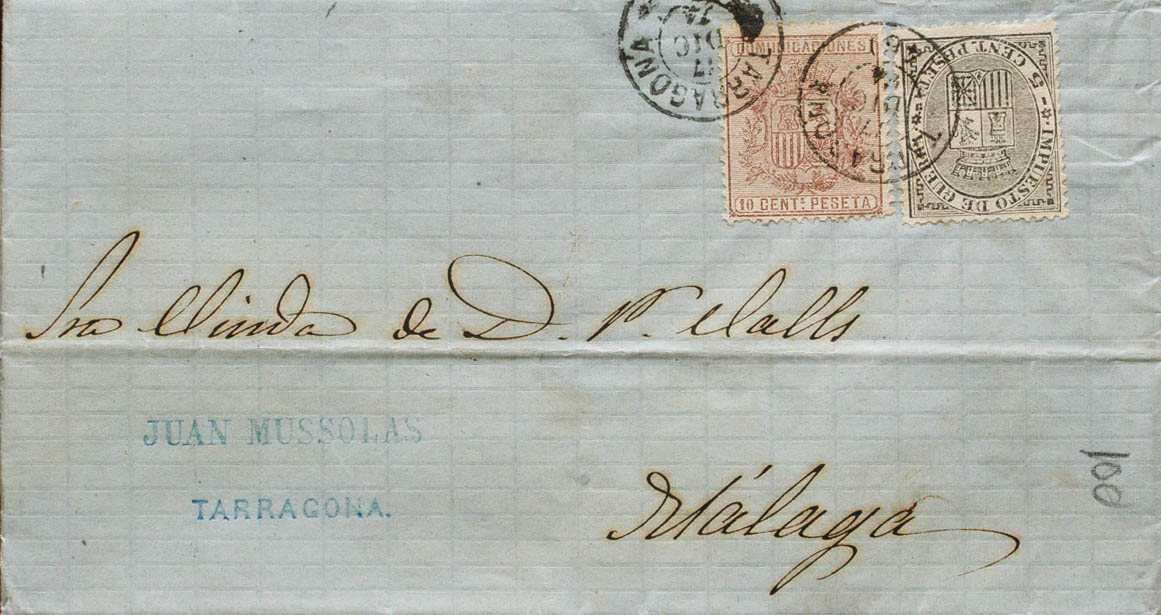 TARRAGONA
17
DIC
74
COMUNICACIONES
10 CENTˢ PESETA
5 CENT. PESETA
IMPUESTO DE GUERRA
Sra Viuda de D. P. Valls
JUAN MUSSOLAS
TARRAGONA.
Málaga
100